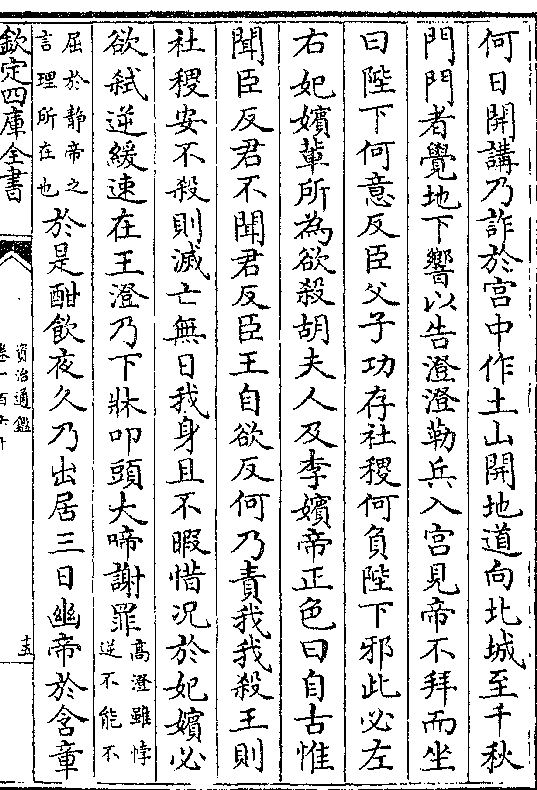 何日開講乃詐於宫中作土山開地道向北城至千秋
門門者覺地下響以告澄澄勒兵入宫見帝不拜而坐
曰陛下何意反臣父子功存社稷何負陛下邪此必左
右妃嬪輩所為欲殺胡夫人及李嬪帝正色曰自古惟
聞臣反君不聞君反臣王自欲反何乃責我我殺王則
社稷安不殺則滅亡無日我身且不暇惜况於妃嬪必
欲弑逆緩速在王澄乃下牀叩頭大啼謝罪高澄雖悖
逆不能不
屈於静帝之
言理所在也於是酣飲夜久乃出居三日幽帝於含章
欽定四庫全書
資治通鑑
卷一百六十
十五